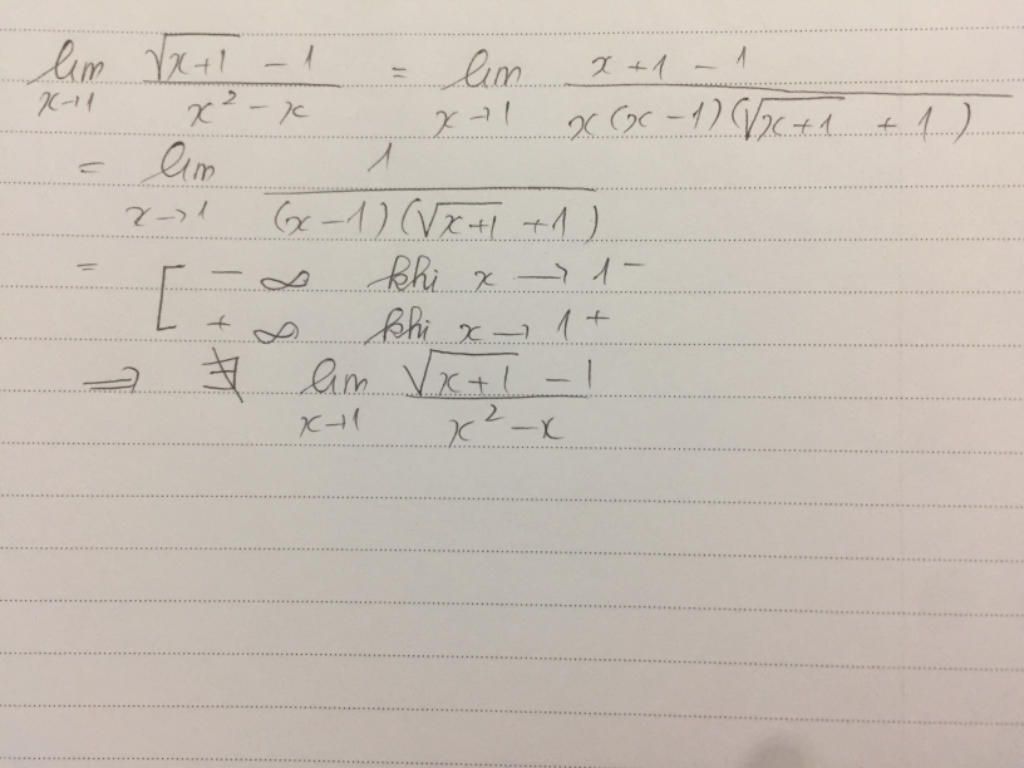 lim x→1 (√(x+1) - 1)/(x² - x) = lim x→1 (x+1-1)/(x(x-1)(√(x+1) + 1))
= lim x→1 1/((x-1)(√(x+1) + 1))
= [ - ∞ khi x → 1⁻
+ ∞ khi x → 1⁺
⇒ ∄ lim x→1 (√(x+1) - 1)/(x² - x)